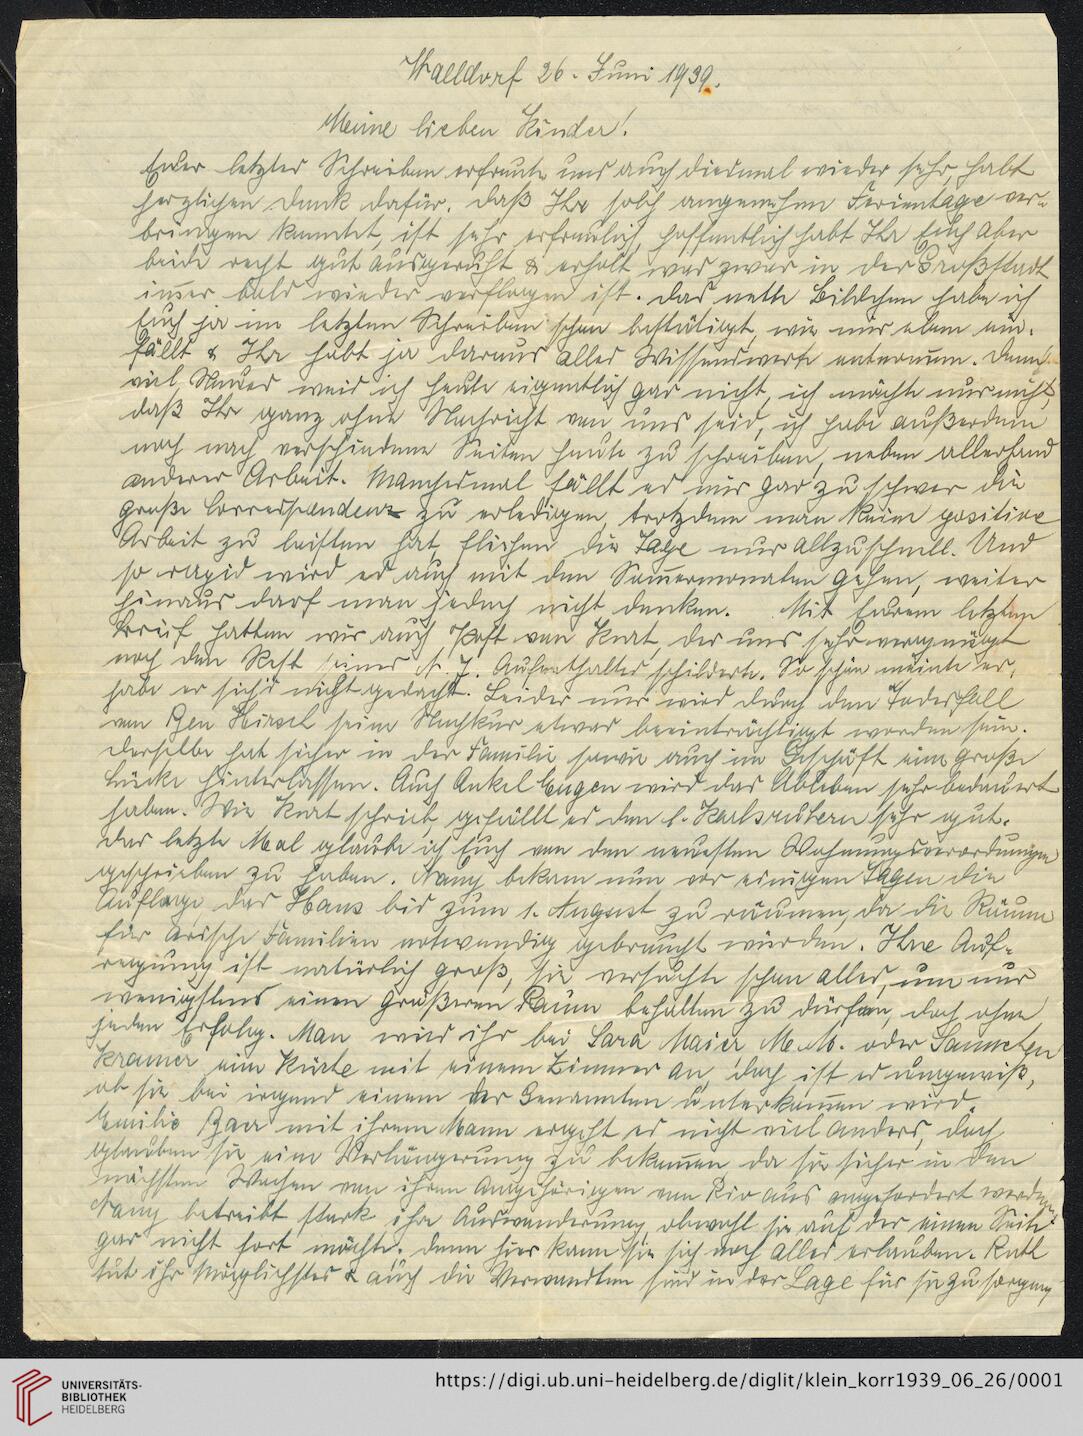 Walldorf 26. Juni 1939.
Meine lieben Kinder!
Euer letztes Schreiben erfreute uns auch diesmal wieder sehr, habt
herzlichen Dank dafür. Daß Ihr solch angenehme Ferientage ver-
bringen konntet, ist sehr erfreulich, hoffentlich habt Ihr Euch aber
beide recht gut ausgeruht & erholt was zwar in der Großstadt
immer bald wieder verflogen ist. Das nette Bildchen habe ich
Euch ja im letzten Schreiben schon bestätigt, wie mir eben ein-
fällt & Ihr habt ja daraus alles Wissenswerte entnommen. Denn
viel Neues weis ich heute eigentlich gar nicht, ich möchte nur nicht,
daß Ihr ganz ohne Nachricht von uns seid, ich habe außerdem
noch nach verschiedene Seiten heute zu schreiben, neben allerhand
anderer Arbeit. Manchesmal fällt es mir gar zu schwer die
große Correspondenz zu erledigen, trotzdem man keine positive
Arbeit zu leisten hat, fliehen die Tage nur allzuschnell. Und
so rapid wird es auch mit den Sommermonaten gehen, weiter
hinaus darf man jedoch nicht denken. Mit Eurem letzten
Brief hatten wir auch Post von Kurt, der uns sehr vergnügt
noch den Rest seines N. J. Aufenthaltes schilderte. So schön meinte er,
habe er sich's nicht gedacht. Leider nur wird durch den Todesfall
von Ben Hirsch seine Nachkur etwas beeinträchtigt worden sein.
Derselbe hat sicher in der Familie sowie auch im Geschäft eine große
Lücke hinterlassen. Auch Onkel Eugen wird das Ableben sehr bedauert
haben. Wie Kurt schrieb, gefällt es den l. Karlsruhern sehr gut.
Das letzte Mal glaube ich Euch von den neuesten Wohnungsverordnungen
geschrieben zu haben. Nany bekam nun vor einigen Tagen die
Auflage, das Haus bis zum 1. August zu räumen, da die Räume
für arische Familien notwendig gebraucht würden. Ihre Auf-
regung ist natürlich groß, sie versuchte schon alles, um nur
wenigstens einen größeren Raum behalten zu dürfen, doch ohne
jeden Erfolg. Man wird ihr bei Sara Maier oder
Kramer eine Küche mit einem Zimmer an, doch ist es ungewiß,
ob sie bei irgend einem der Genannten unterkommen wird.
Emilie mit ihrem Mann ergeht es nicht viel anders, doch
glauben sie eine Verlängerung zu bekommen, da sie sicher in den
nächsten Wochen von ihren Angehörigen von Rio aus angefordert werden.
Nany betreibt stark ihre Auswanderung, obwohl sie auf der einen Seite
gar nicht fort möchte. Denn hier kann sie sich noch alles erlauben. Ruth
tut ihr Möglichstes & auch die Verwandten sind in der Lage für sie zu sorgen,
UNIVERSITÄTS-
BIBLIOTHEK
HEIDELBERG
https://digi.ub.uni-heidelberg.de/diglit/klein_korr1939_06_26/0001